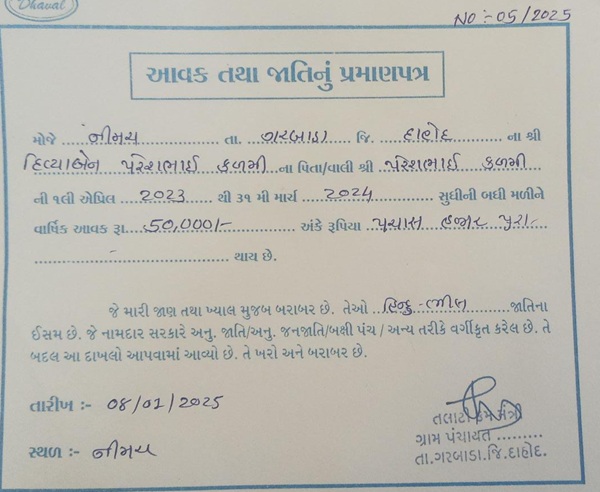 Dhaval
NO :- 05/2025
આવક તથા જાતિનું પ્રમાણપત્ર
મોજે ..... નીમચ ..... તા. ગરબાડા ..... જિ. દાહોદ ..... ના શ્રી
દિવ્યાબેન પરેશભાઈ કળમી ના પિતા/વાલી શ્રી પરેશભાઈ કળમી
ની ૧લી એપ્રિલ ..... 2023 ..... થી ૩૧ મી માર્ચ ..... 2024 ..... સુધીની બધી મળીને
વાર્ષિક આવક રૂા. 50,000/- ..... અંકે રૂપિયા પચાસ હજાર પુરા-
..... - ..... થાય છે.
જે મારી જાણ તથા ખ્યાલ મુજબ બરાબર છે. તેઓ હિન્દુ-ભીલ ..... જાતિના
ઈસમ છે. જે નામદાર સરકારે અનુ. જાતિ/અનુ. જનજાતિ/બક્ષી પંચ / અન્ય તરીકે વર્ગીકૃત કરેલ છે. તે
બદલ આ દાખલો આપવામાં આવ્યો છે. તે ખરો અને બરાબર છે.
તારીખ :- 08/01/2025
તલાટી કમ મંત્રી
ગ્રામ પંચાયત .........
સ્થળ :- નીમચ
તા.ગરબાડા.જિ.દાહોદ.